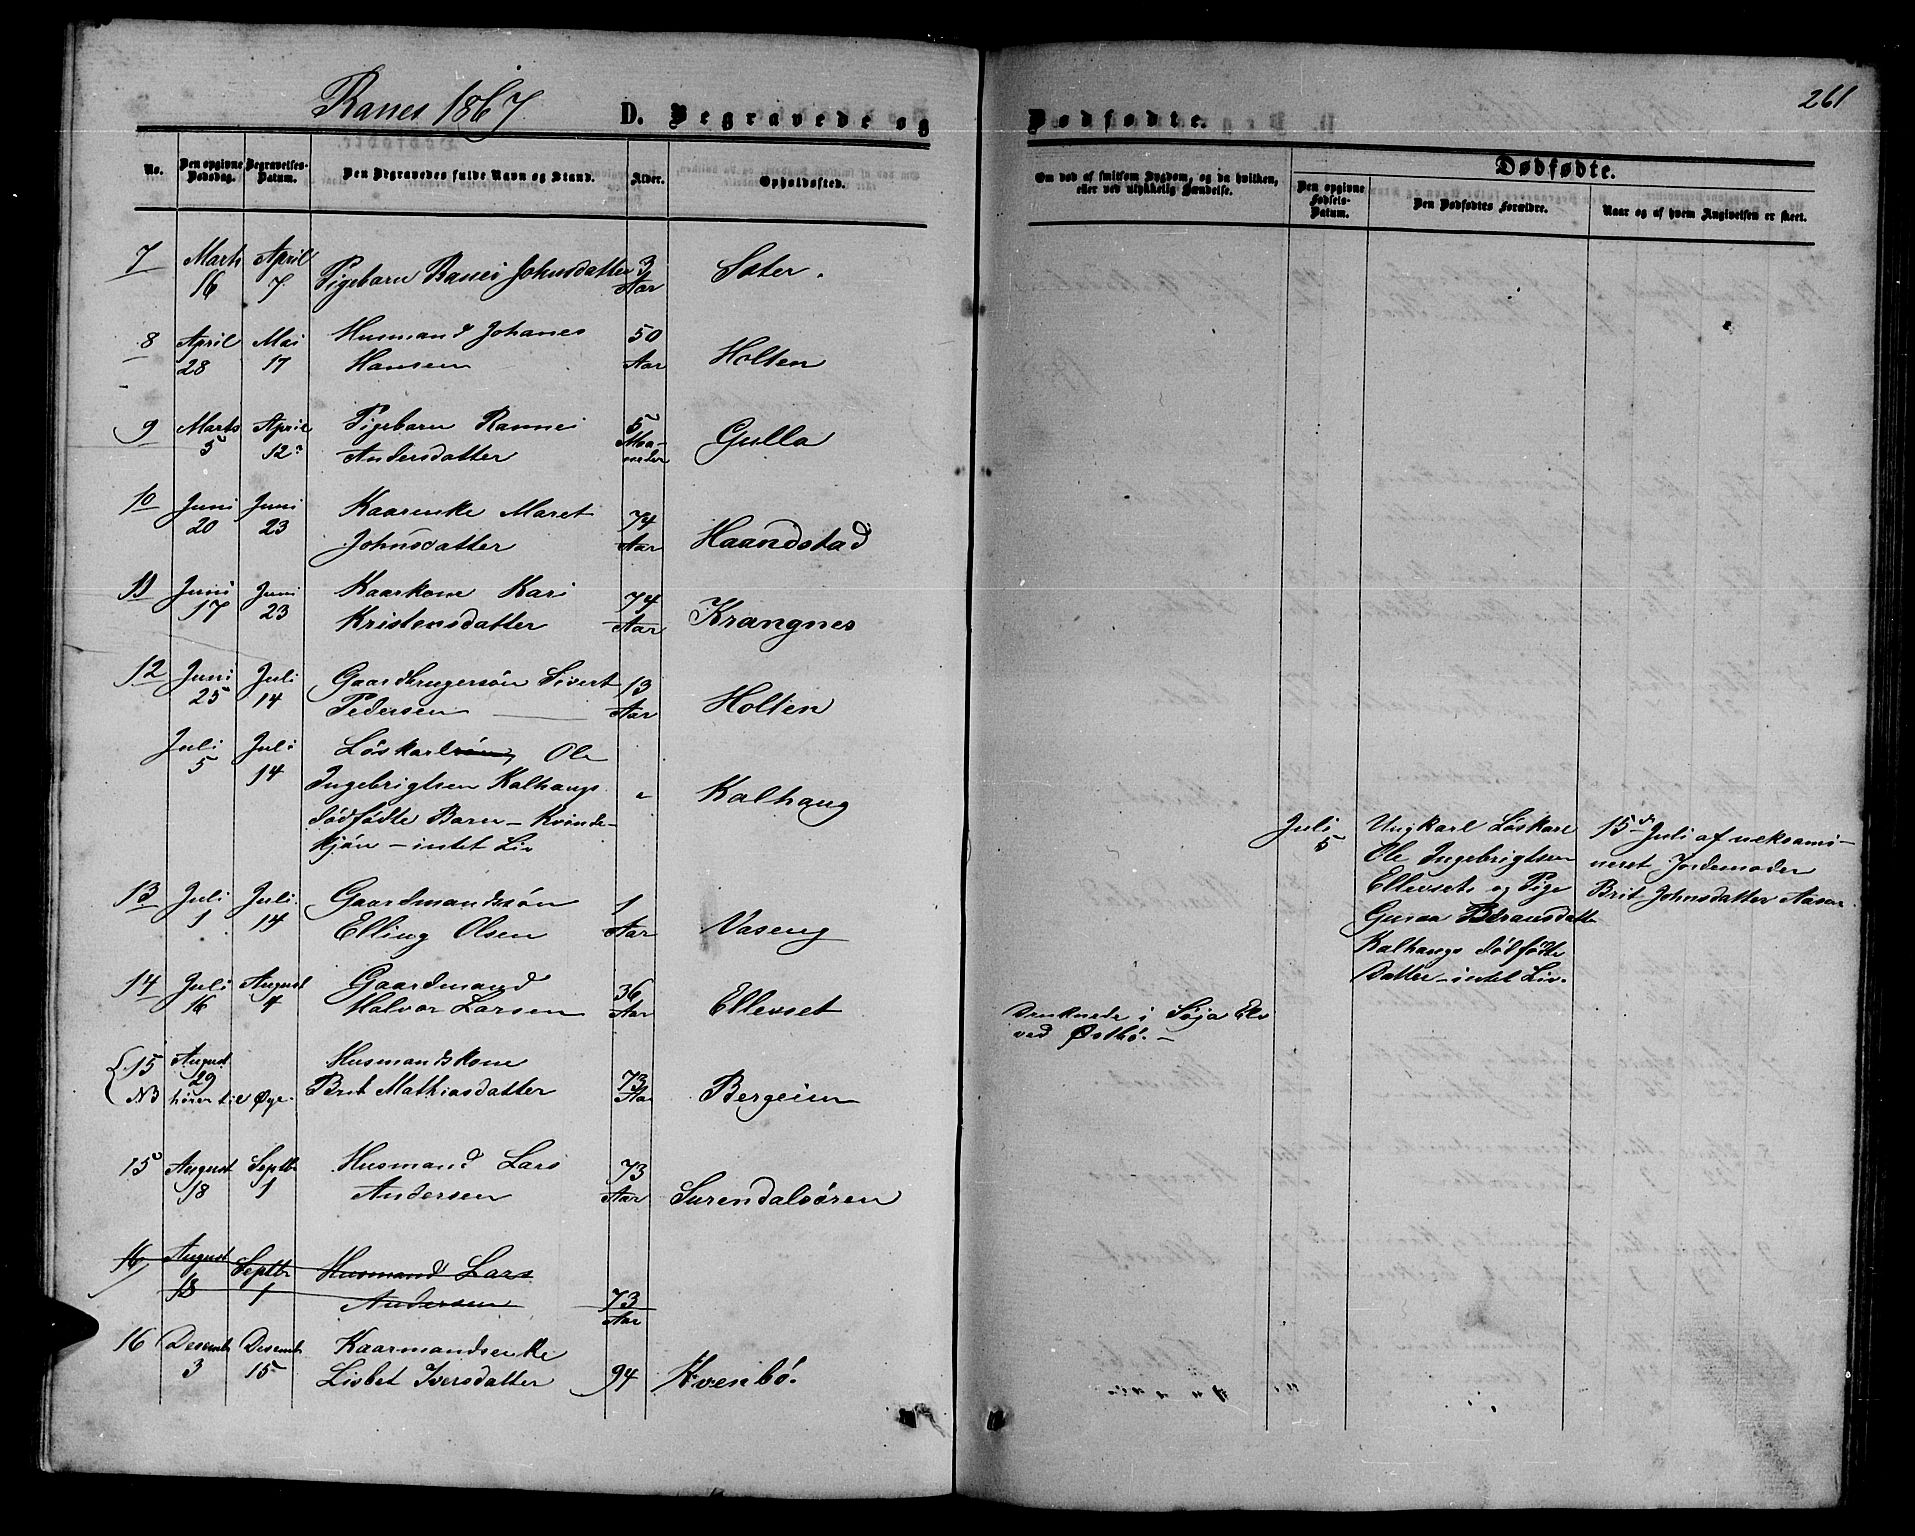 Ranes 1867.
D. Begravede og
Dødfødte.
261
No.
Den opgivne Dødsdag.
Begravelses-Datum.
Den Begravedes fulde Navn og Stand.
Alder.
Opholdssted.
Om død af smitsom Sygdom, og da hvilken,
eller ved ulykkelig Hændelse.
Dødfødte.
Den opgivne Fødsels-Datum.
Den Dødfødtes Forældre.
Naar og af hvem Angivelsen er skeet.
7 Marts 16 April 7 Pigebarn Ranei Johnsdatter 3 Aar Sæter.
8 April 28 Mai 17 Husmand Johanes
Hansen 50 Aar Holten
9 Marts 5 April 12 Pigebarn Rannei
Andersdatter 5 Maaneder Gulla
10 Juni 20 Juni 23 Kaarenke Maret
Johnsdatter 74 Aar Haandstad
11 Juni 17 Juni 23 Kaarkone Kari
Kristensdatter 74 Aar Krangnes
12 Juni 25 Juli 14 Gaardbrugersøn Sivert
Pedersen 13 Aar Holten
Juli 5 Juli 14 Løskarlsøn, Ole
Ingebrigtsen Kalhaugs
dødfødte Barn – Kvinde-
kjøn – intet Liv " Kalhaug
Juli 5
Ungkarl Løskarl
Ole Ingebrigtsen
Ellevset og Pige
Guraa
Kalhaugs dødfødte
Datter – intet Liv.
15de Juli af ueksami-
neret Jordemoder
Brit Johnsdatter Aasen.
13 Juli 1 Juli 14 Gaardmandssøn
Elling Olsen 1 Aar Vaseng
14 Juli 16 August 4 Gaardmand
Halvor Larsen 36 Aar Ellevset
Druknede i Søja Elv
ved Østbø. –
15 August 29 Husmandskone
NB hører til Øye. Brit Mathiasdatter 73 Aar Bergeim
15 August 18 Septbr 1 Husmand Lars
Andersen 73 Aar Surendalsøren
16 August 18 Septbr 1 Husmand Lars
Andersen 73 Aar
16 Desemb 3 Desemb 15 Kaarmandsenke
Lisbet Iversdatter 94 Kvenbø.